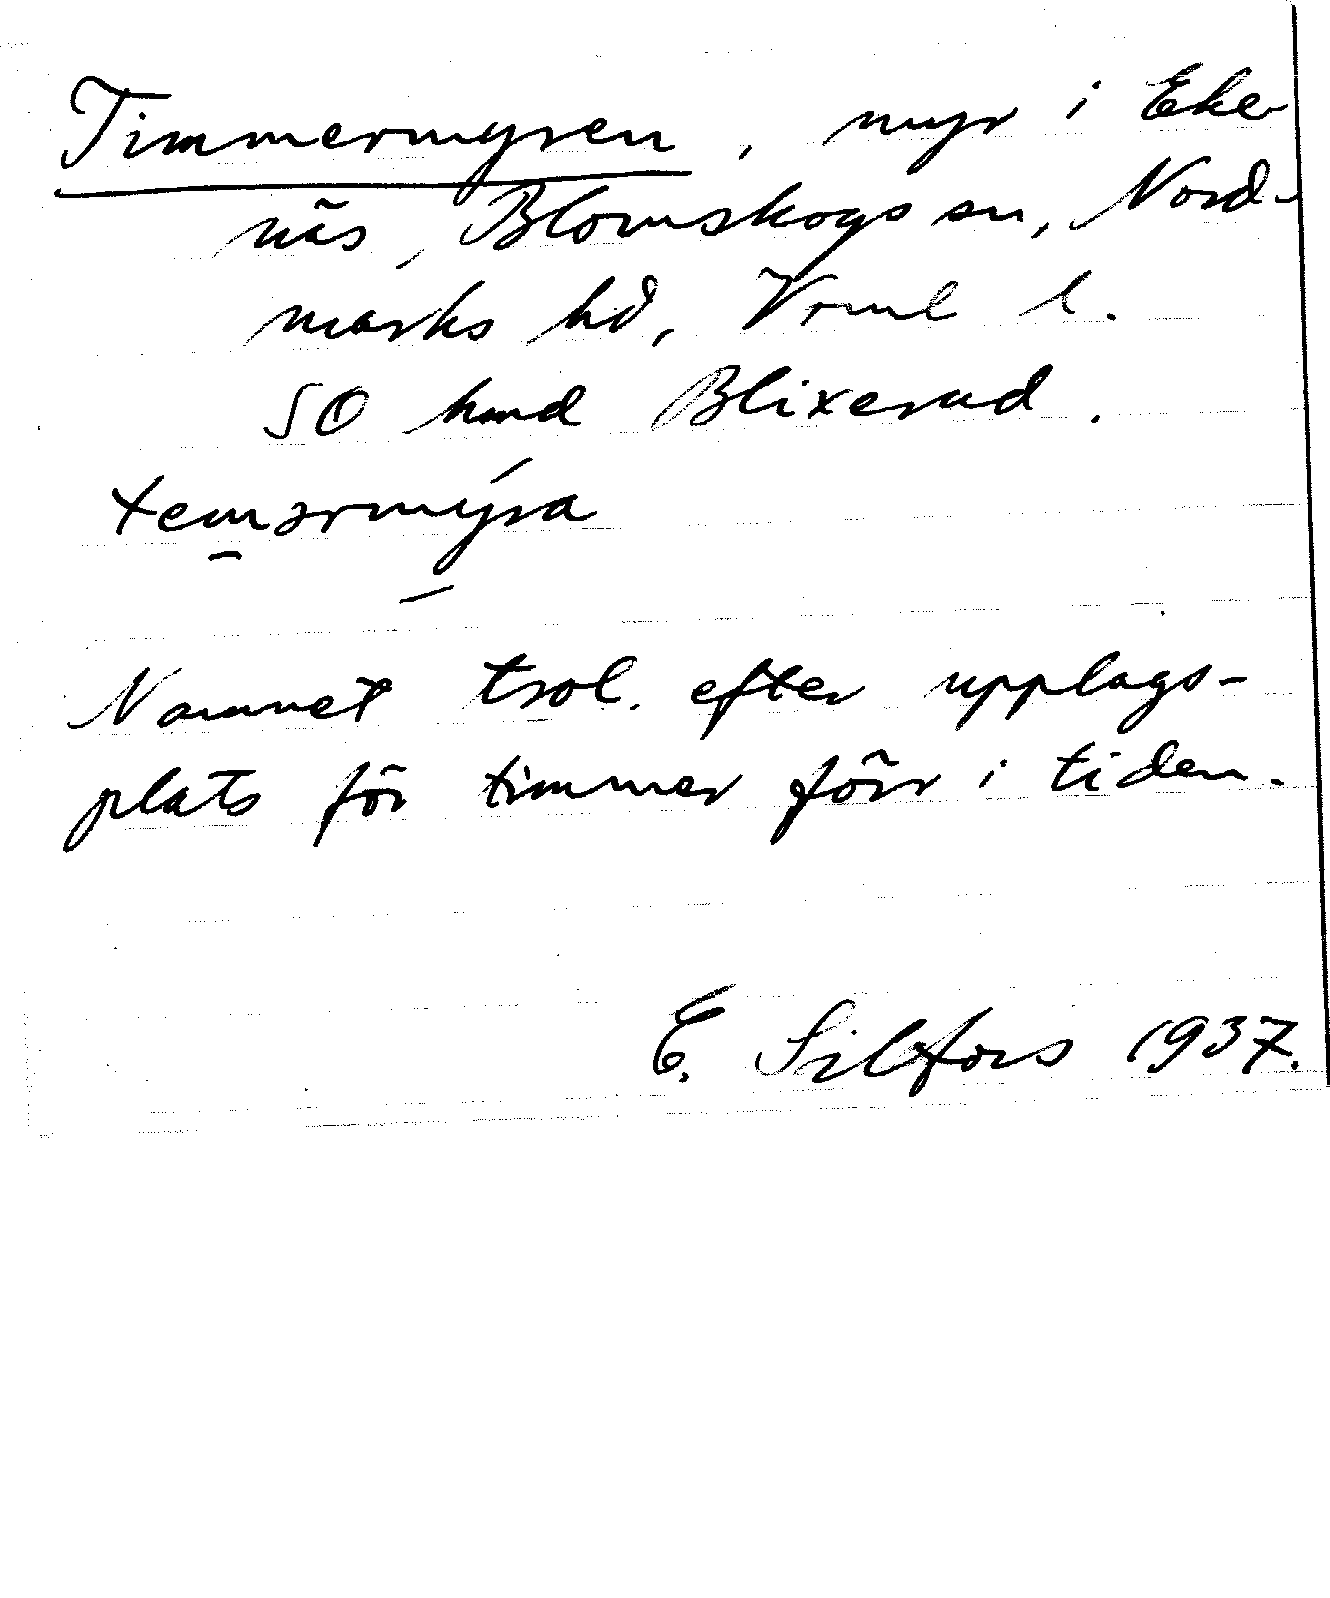 Timmermyren, myr i Eke-
näs, Blomskogs sn, Nord-
marks hd, Vrml l.
SO hmd Blixerud.
temərmýra
Namnet trol. efter upplags-
plats för timmer förr i tiden.
E. Silfors 1937.